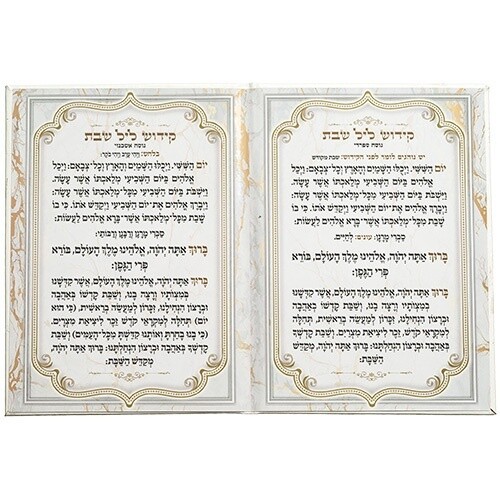 קידוש ליל שבת
נוסח ספרדי
יש נוהגים לומר לפני הקידוש: שבת מקודש
יוֹם הַשִּׁשִּׁי. וַיְכֻלּוּ הַשָּׁמַיִם וְהָאָרֶץ וְכָל־צְבָאָם: וַיְכַל
אֱלֹהִים בַּיּוֹם הַשְּׁבִיעִי מְלַאכְתּוֹ אֲשֶׁר עָשָׂה.
וַיִּשְׁבֹּת בַּיּוֹם הַשְּׁבִיעִי מִכָּל־מְלַאכְתּוֹ אֲשֶׁר עָשָׂה:
וַיְבָרֶךְ אֱלֹהִים אֶת־יוֹם הַשְּׁבִיעִי וַיְקַדֵּשׁ אֹתוֹ. כִּי בוֹ
שָׁבַת מִכָּל־מְלַאכְתּוֹ אֲשֶׁר־בָּרָא אֱלֹהִים לַעֲשׂוֹת:
סַבְרִי מָרָנָן: עונים: לְחַיִּים.
בָּרוּךְ אַתָּה יְהֹוָה, אֱלֹהֵינוּ מֶלֶךְ הָעוֹלָם, בּוֹרֵא
פְּרִי הַגֶּפֶן:
בָּרוּךְ אַתָּה יְהֹוָה, אֱלֹהֵינוּ מֶלֶךְ הָעוֹלָם, אֲשֶׁר קִדְּשָׁנוּ
בְּמִצְוֹתָיו וְרָצָה בָנוּ, וְשַׁבַּת קָדְשׁוֹ בְּאַהֲבָה
וּבְרָצוֹן הִנְחִילָנוּ, זִכָּרוֹן לְמַעֲשֵׂה בְרֵאשִׁית,
תְּחִלָּה לְמִקְרָאֵי קֹדֶשׁ, זֵכֶר לִיצִיאַת מִצְרָיִם, וְשַׁבַּת קָדְשְׁךָ
בְּאַהֲבָה וּבְרָצוֹן הִנְחַלְתָּנוּ: בָּרוּךְ אַתָּה יְהֹוָה, מְקַדֵּשׁ
הַשַּׁבָּת:
קידוש ליל שבת
נוסח אשכנזי
בלחש: וַיְהִי עֶרֶב וַיְהִי בֹקֶר:
יוֹם הַשִּׁשִּׁי. וַיְכֻלּוּ הַשָּׁמַיִם וְהָאָרֶץ וְכָל־צְבָאָם: וַיְכַל
אֱלֹהִים בַּיּוֹם הַשְּׁבִיעִי מְלַאכְתּוֹ אֲשֶׁר עָשָׂה.
וַיִּשְׁבֹּת בַּיּוֹם הַשְּׁבִיעִי מִכָּל־מְלַאכְתּוֹ אֲשֶׁר עָשָׂה:
וַיְבָרֶךְ אֱלֹהִים אֶת־יוֹם הַשְּׁבִיעִי וַיְקַדֵּשׁ אֹתוֹ. כִּי בוֹ
שָׁבַת מִכָּל־מְלַאכְתּוֹ אֲשֶׁר־בָּרָא אֱלֹהִים לַעֲשׂוֹת:
סַבְרִי מָרָנָן וְרַבָּנָן וְרַבּוֹתַי:
בָּרוּךְ אַתָּה יְהֹוָה, אֱלֹהֵינוּ מֶלֶךְ הָעוֹלָם, בּוֹרֵא
פְּרִי הַגָּפֶן:
בָּרוּךְ אַתָּה יְהֹוָה, אֱלֹהֵינוּ מֶלֶךְ הָעוֹלָם, אֲשֶׁר קִדְּשָׁנוּ
בְּמִצְוֹתָיו וְרָצָה בָנוּ, וְשַׁבַּת קָדְשׁוֹ בְּאַהֲבָה
וּבְרָצוֹן הִנְחִילָנוּ, זִכָּרוֹן לְמַעֲשֵׂה בְרֵאשִׁית, (כִּי הוּא
יוֹם) תְּחִלָּה לְמִקְרָאֵי קֹדֶשׁ זֵכֶר לִיצִיאַת מִצְרָיִם,
(כִּי בָנוּ בָחַרְתָּ וְאוֹתָנוּ קִדַּשְׁתָּ מִכָּל־הָעַמִּים) וְשַׁבַּת
קָדְשְׁךָ בְּאַהֲבָה וּבְרָצוֹן הִנְחַלְתָּנוּ: בָּרוּךְ אַתָּה יְהֹוָה,
מְקַדֵּשׁ הַשַּׁבָּת: